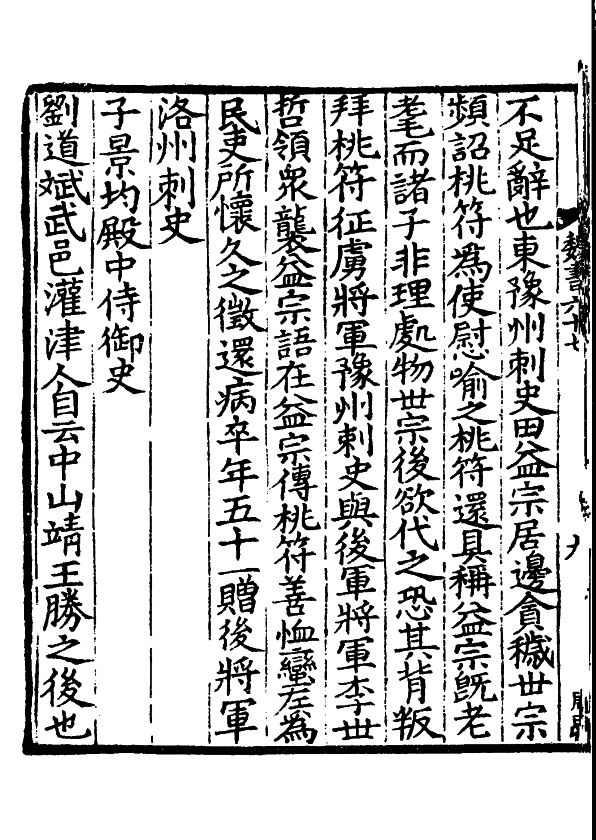 魏書六十七
不足辭也東豫州刺史田益宗居邊貪穢世宗
頻詔桃符為使慰喻之桃符還具稱益宗既老
耄而諸子非理處物世宗後欲代之恐其背叛
拜桃符征虜將軍豫州刺史與後軍將軍李世
哲領衆襲益宗語在益宗傳桃符善恤蠻左為
民吏所懷久之徵還病卒年五十一贈後將軍
洛州刺史
子景均殿中侍御史
劉道斌武邑灌津人自云中山靖王勝之後也